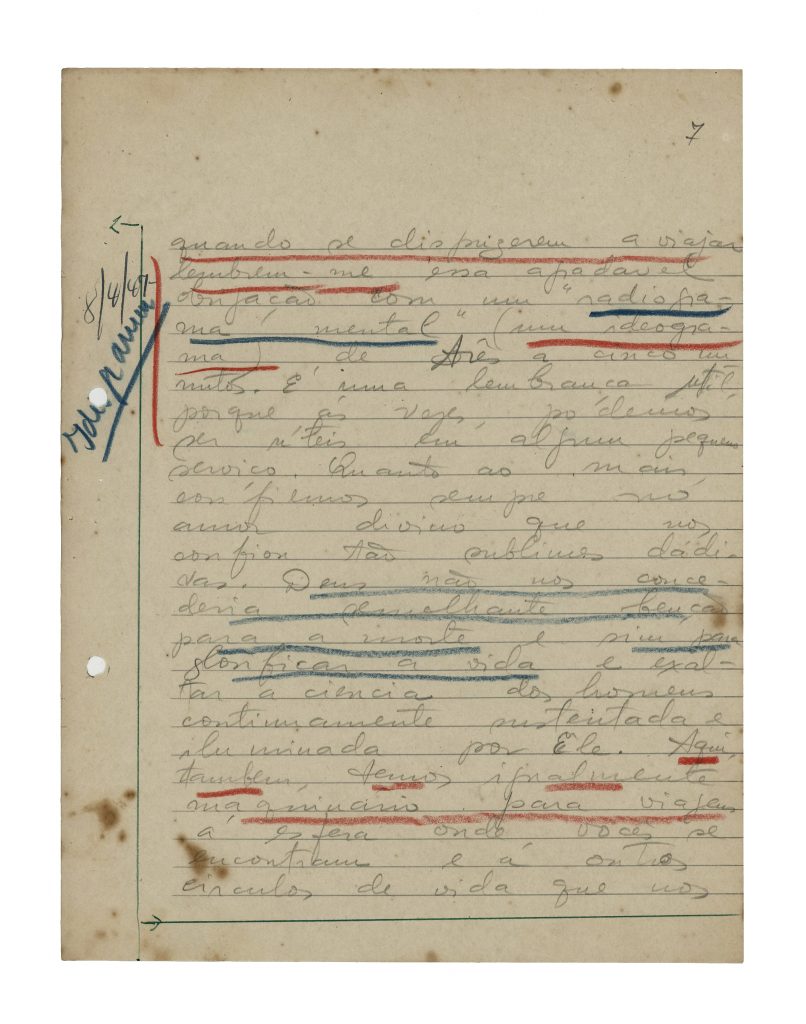 7
quando se dispuzerem a viajar
lembrem-me essa agradavel
obrigação com um "radiogra-
ma mental" (um ideogra-
ma) de três a cinco mi
nutos. É uma lembrança util
porque ás vezes podemos
ser úteis em algum pequeno
serviço. Quanto ao mais,
confiemos sempre no
amor divino que nos
confiou tão sublimes dádi-
vas. Deus não nos conce-
deria semelhante benção
para a morte e sim para
glorificar a vida e exal-
tar a ciencia dos homens
continuamente sustentada e
iluminada por Ele. Aqui,
tambem, temos igualmente
maquinario para viagens
á esfera onde vocês se
encontram e á outros
circulos de vida que nos
8/4/47